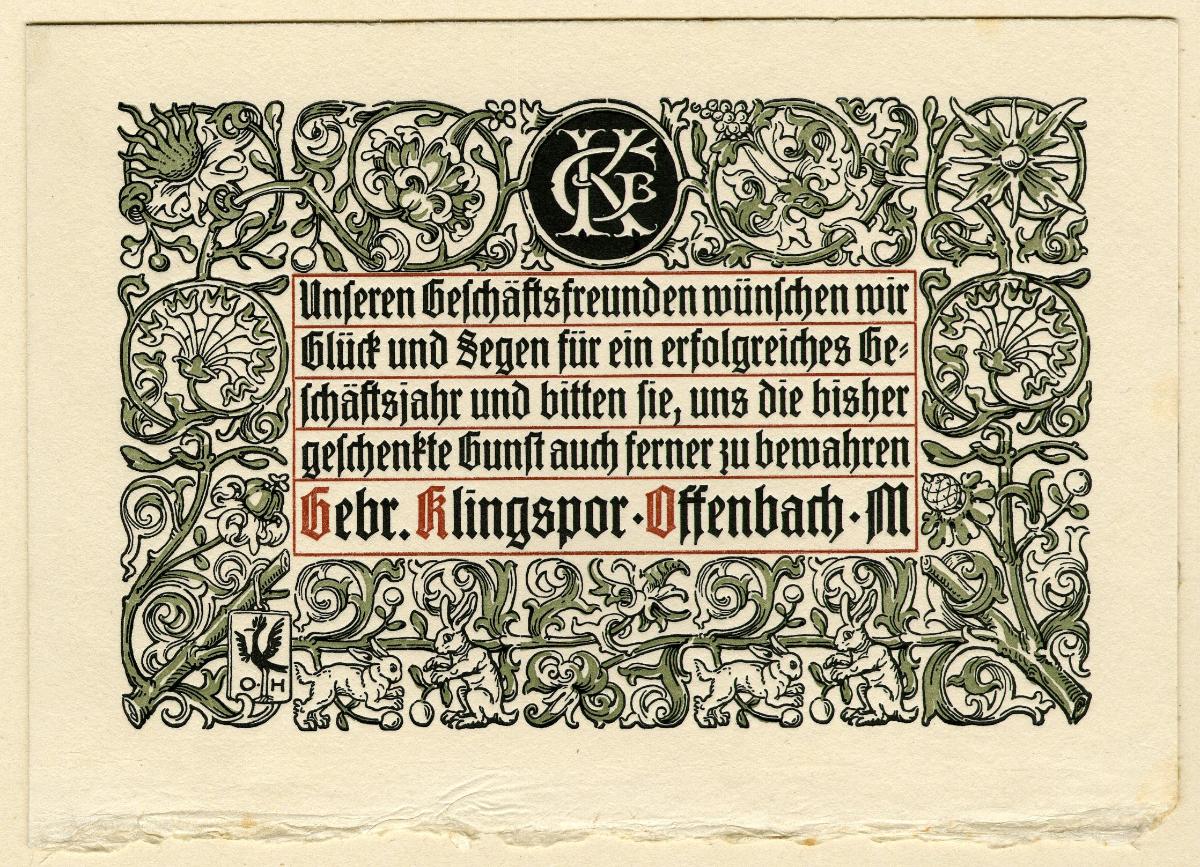 KGB
Unſeren Geſchäftsfreunden wünſchen wir
Glück und Segen für ein erfolgreiches Ge⸗
ſchäftsjahr und bitten ſie, uns die bisher
geſchenkte Gunſt auch ferner zu bewahren
Gebr. Klingspor · Offenbach · M
O H